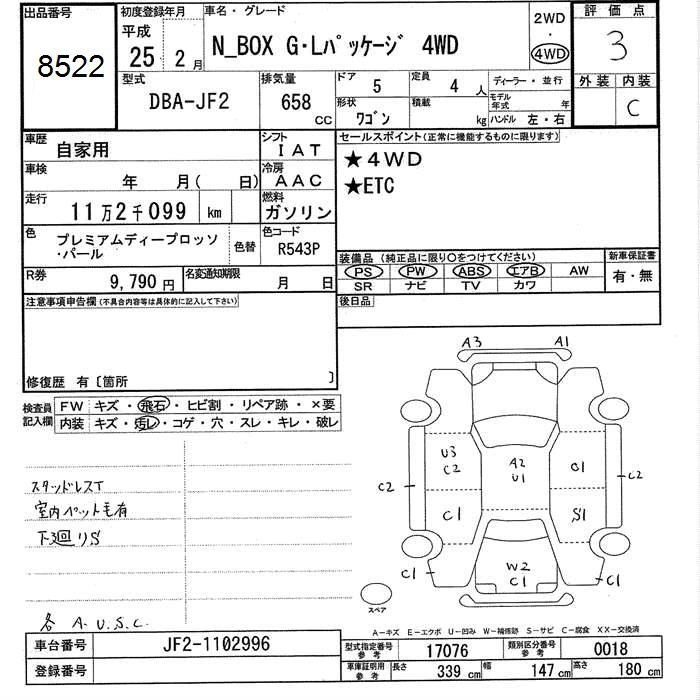 出品番号
8522
初度登録年月
平成
25 . 2 月
車名 ・ グレード
N_BOX G・Lパッケージ 4WD
2WD
・
4WD
評 価 点
3
外 装 内 装
C
型式
DBA-JF2
排気量
658 CC
ドア 5
定員 4 人
ディーラー ・ 並 行
形状 ワゴン
積載 kg
モデル年式 年
ハンドル 左 ・ 右
車歴 自家用
シフト I A T
車検 年 月( 日)
冷房 A A C
走行 11 万 2 千 099 km
燃料 ガソリン
色 プレミアムディープロッソ
・パール
色替
色コード R543P
R券 9,790 円
名変通知期限 月 日
セールスポイント(正常に機能するものに限ります)
★4WD
★ETC
装備品 (純正品に限り○をつけてください)
PS PW ABS エアB AW
SR ナビ TV カワ
新車保証書
有 ・ 無
後日品
注意事項申告欄(不具合内容等は具体的に記入して下さい)
修復歴 有〔箇所 〕
検査員
記入欄
FW キズ ・ 飛石 ・ ヒビ割 ・ リペア跡 ・ ×要
内装 キズ ・ 汚レ ・ コゲ ・ 穴 ・ スレ ・ キレ ・ 破レ
スタッドレスT
室内ペット毛有
下廻りS
各 A. U. S. C.
A3 A1
U3
C2
A2
U1
C1
C2
C2
C1
S1
W2
C1
C1
C1
スペア
A－キズ E－エクボ U－凹み W－補修跡 S－サビ C－腐食 XX－交換済
車台番号 JF2-1102996
登録番号
型式指定番号
参 考
17076
類別区分番号
参 考
0018
車庫証明用
参 考
長さ 339 cm
幅 147 cm
高さ 180 cm